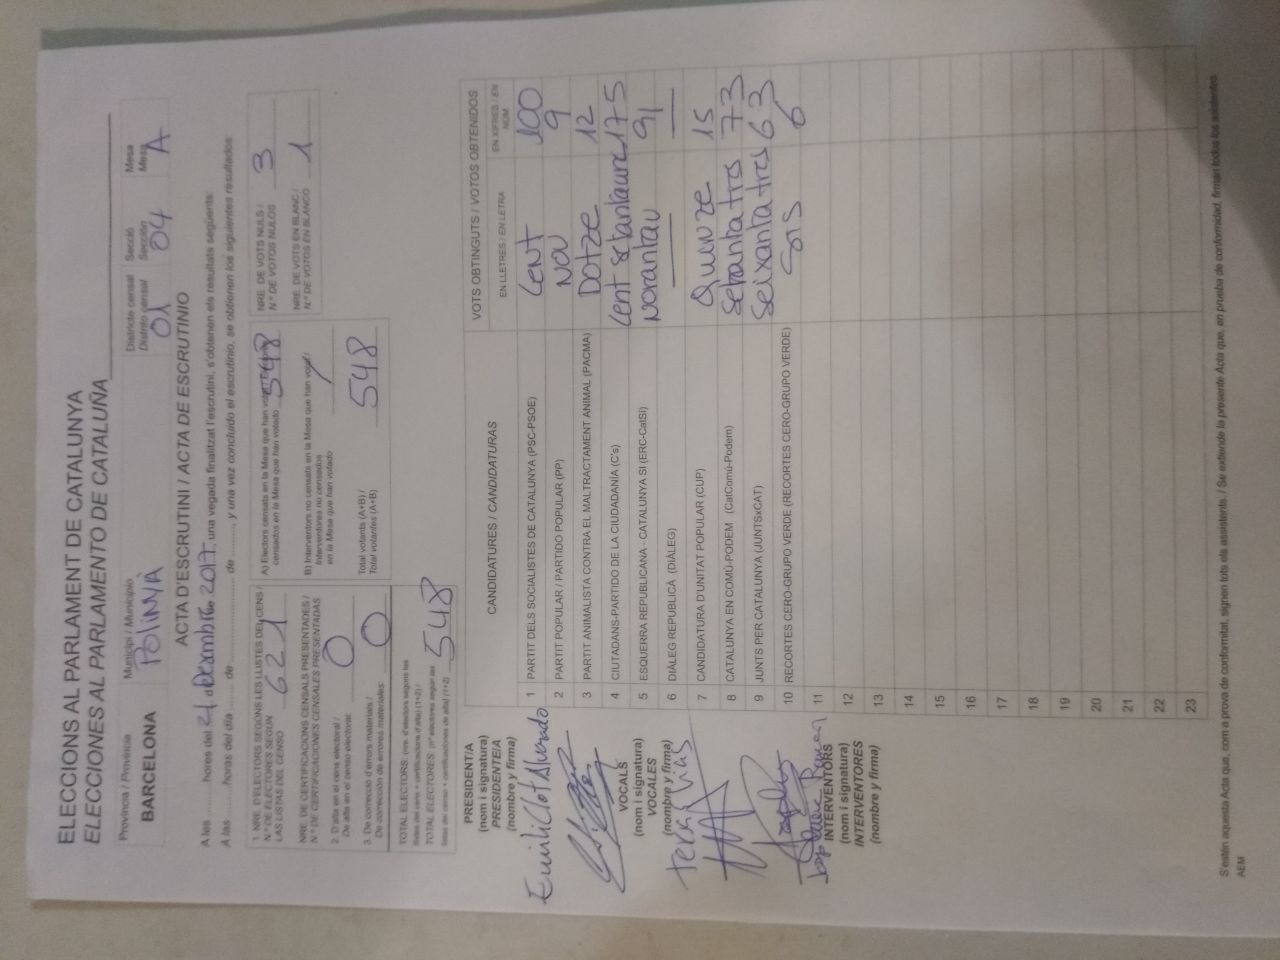 ELECCIONS AL PARLAMENT DE CATALUNYA
ELECCIONES AL PARLAMENTO DE CATALUÑA
Província / Provincia
BARCELONA
Municipi / Municipio
POLINYÀ
Districte censal
Distrito censal
01
Secció
Sección
04
Mesa
Mesa
A
ACTA D'ESCRUTINI / ACTA DE ESCRUTINIO
A les ............ hores del 21 de Desembre 2017, una vegada finalitzat l'escrutini, s'obtenen els resultats següents:
A las ............ horas del día ....... de ............................ de ..........., y una vez concluido el escrutinio, se obtienen los siguientes resultados:
1. NRE. D'ELECTORS SEGONS LES LLISTES DEL CENS /
N.º DE ELECTORES SEGÚN
LAS LISTAS DEL CENSO
621
NRE. DE CERTIFICACIONS CENSALS PRESENTADES /
N.º DE CERTIFICACIONES CENSALES PRESENTADAS
2. D'alta en el cens electoral /
De alta en el censo electoral:
0
3. De correcció d'errors materials /
De corrección de errores materiales:
0
TOTAL ELECTORS: (nre. d'electors segons les
llistes del cens + certificacions d'alta) (1+2) /
TOTAL ELECTORES: (nº electores según las
listas del censo + certificaciones de alta) (1+2)
548
A) Electors censats en la Mesa que han votat
censados en la Mesa que han votado
548
B) Interventors no censats en la Mesa que han votat /
Interventores no censados
en la Mesa que han votado
/
Total votants (A+B) /
Total votantes (A+B)
548
NRE. DE VOTS NULS /
N.º DE VOTOS NULOS
3
NRE. DE VOTS EN BLANC /
N.º DE VOTOS EN BLANCO
1
PRESIDENT/A
(nom i signatura)
PRESIDENTE/A
(nombre y firma)
VOCALS
(nom i signatura)
VOCALES
(nombre y firma)
INTERVENTORS
(nom i signatura)
INTERVENTORES
(nombre y firma)
CANDIDATURES / CANDIDATURAS
VOTS OBTINGUTS / VOTOS OBTENIDOS
EN LLETRES / EN LETRA
EN XIFRES / EN NÚM.
1 PARTIT DELS SOCIALISTES DE CATALUNYA (PSC-PSOE) CENT 100
2 PARTIT POPULAR / PARTIDO POPULAR (PP) NOU 9
3 PARTIT ANIMALISTA CONTRA EL MALTRACTAMENT ANIMAL (PACMA) DOTZE 12
4 CIUTADANS-PARTIDO DE LA CIUDADANÍA (C's) Cent 175
5 ESQUERRA REPUBLICANA - CATALUNYA SI (ERC-CatSí) 91
6 DIÀLEG REPUBLICÀ (DIÀLEG)
7 CANDIDATURA D'UNITAT POPULAR (CUP) Quinze 15
8 CATALUNYA EN COMÚ-PODEM (CatComú-Podem) 73
9 JUNTS PER CATALUNYA (JUNTSxCAT) Seixanta tres 63
10 RECORTES CERO-GRUPO VERDE (RECORTES CERO-GRUPO VERDE) SIS 6
11
12
13
14
15
16
17
18
19
20
21
22
23
S'estén aquesta Acta que, com a prova de conformitat, signen tots els assistents. / Se extiende la presente Acta que, en prueba de conformidad, firman todos los asistentes
AEM